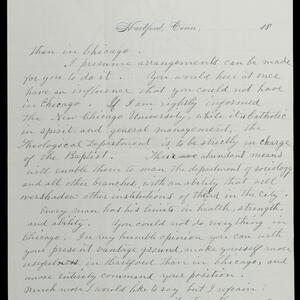 Hartford, Conn., 18
than in Chicago.
I presume arrangements can be made
for you to do it. You would here at once
have an influence that you could not have
in Chicago. If I am rightly informed
the New Chicago University, while its catholic
in spirit and general management, the
Theological Department is to be strictly in charge
of the Baptist. Their abundant means
will enable them to man the department of sociology
and all other branches with an ability that will
overshadow other institutions of in the City.
Every man has his limits in health, strength
and ability. You could not do everything in
Chicago. In my humble opinion you can with
your present vantage ground make yourself more
useful in Hartford than in Chicago, and
more entirely command your position.
Much more I would like to say but I refrain: